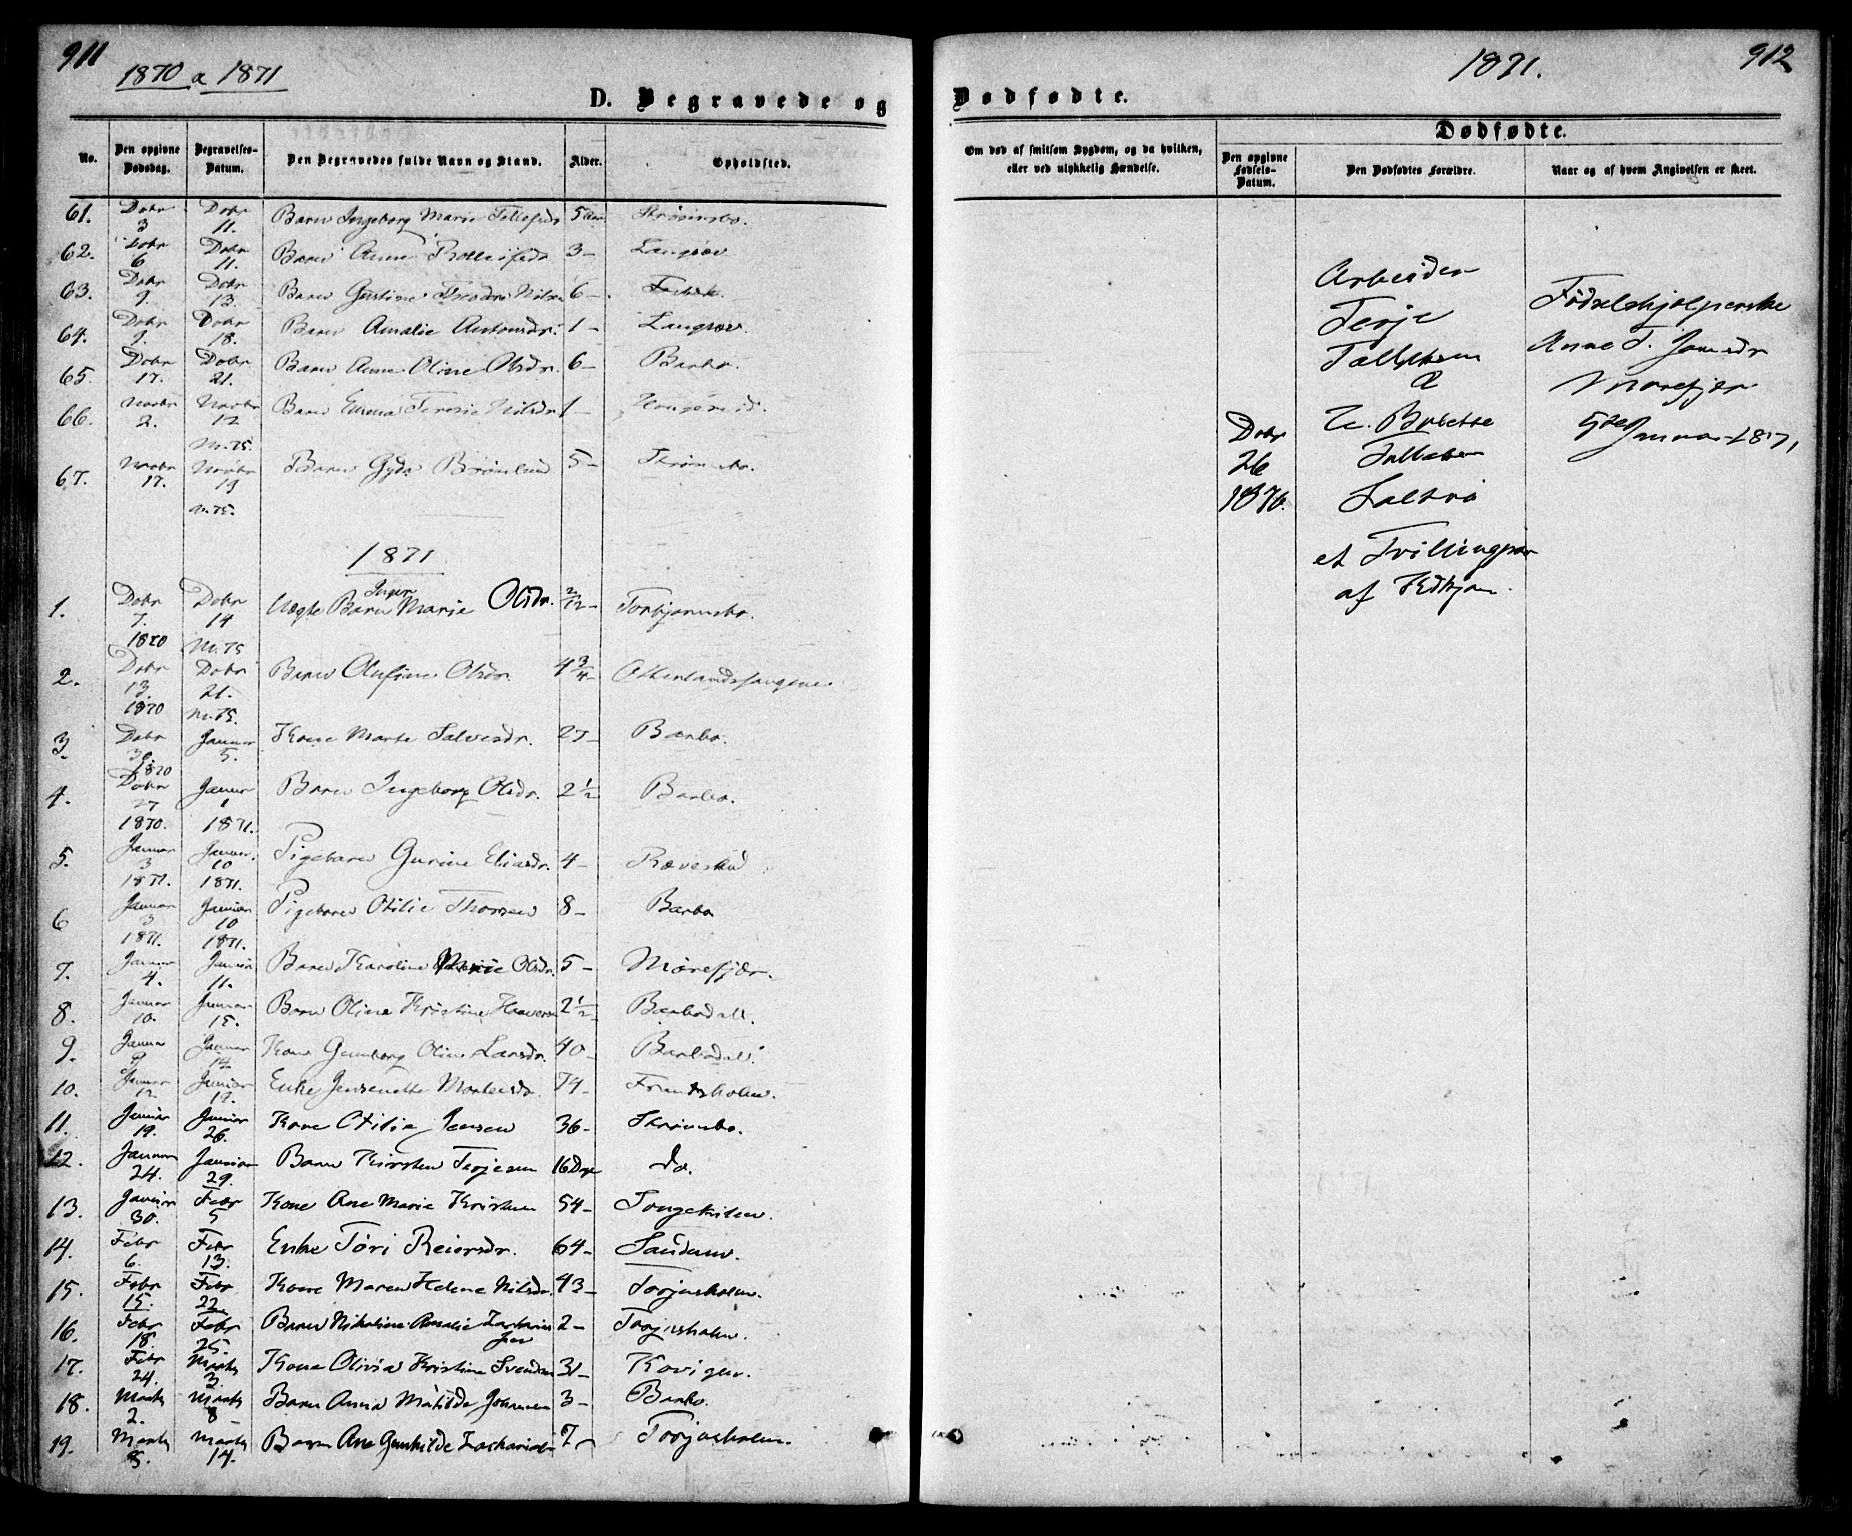 911
1870 & 1871
D. Begravede og
No.
Den opgivne Dødsdag.
Begravelses-Datum.
Den Begravedes fulde Navn og Stand.
Alder.
Opholdsted.
61. Dcbr 3 Dcbr 11. Barn Ingeborg Marie 5 Strømsbo.
62. Dcbr 6 Dcbr 11. Barn Anne 3- Langsæv
63. Dcbr 9. Dcbr 13. Barn 6-
64. Dcbr 9. Dcbr 18. Barn Amalie Antonsdr. 1- Langsæv.
65. Dcbr 17. Dcbr 21. Barn Anne Oline Olsdr. 6- Barbo.
66. Novbr 2. Novbr 12 M. 75. Barn Emma Teresie Nilsdr 1-
67. Novbr 17. Novbr 19 M. 75. Barn Gyda 5- Strømsbo.
1871
1. Dcbr 7. 1870 Dcbr 14 M. 75 Uægte Barn Inger Marie Olsdr. 2/12- Torbjørnsbo.
2. Dcbr 13. 1870 Dcbr 21. M. 75. Barn Olufine Olsdr. 4 3/4-
3. Dcbr 30. 1870 Januar 5. Kone Marte Salvesdr. 27- Barbo.
4. Dcbr 27 1870. Januar 1 1871. Barn Ingeborg Olsdr. 2 1/2 Barbo.
5. Januar 3 1871. Januar 10 1871. Pigebarn Gurine Eliasdr. 4-
6 Januar 3 1871. Januar 10 1871. Pigebarn Otilie Thorsen 8- Barbo
7. Januar 4. Januar 11. Barn Karoline Marie Olsdr. 5- Mørefjær.
8. Januar 10. Januar 15. Barn Oline Kristine 2 1/2- Barbodal.
9. Januar 9 Januar 14 Kone Gunborg Oline Larsdr. 40- Barbodal.
10. Januar 12. Januar 19. Enke Jensenette 79- Frantsholm.
11. Januar 19. Januar 26. Kone Otilia Jensen 36- Strømsbo.
12. Januar 24. Januar 29. Barn Kirsten Terjesen 16 Dage do.
13. Januar 30. Febr 5 Kone Ane Marie Kristensen 54- Songekilen.
14. Febr 6. Febr 13. Enke Tøri Reiersdr. 64-
15. Febr 15. Febr 22 Kone Maren Helene Nilsdr. 43- Torjusholm.
16. Febr 18. Febr 25. Barn Nikoline Amalie 2- Torjusholm.
17. Febr 24. Marts 3. Kone Olivia Kristine Svendsen 31- Kovigen.
18. Marts 2. Marts 8- Barn Anna Matilde Johansen 3- Barbo.
19. Marts 8. Marts 14. Barn Ane Gunhilde Zachariasen 7- Torjusholm.
1871.
912
Dødfødte.
Om død af smitsom Sygdom, og da hvilken,
eller ved ulykkelig Hændelse.
Dødfødte.
Den opgivne Fødsels-Datum.
Den Dødfødtes Forældre.
Naar og af hvem Angivelsen er skeet.
Dcbr
26
1870.
Arbeider
Terje
Tallaksen
&
Babette
Tallaksen
Saltrø
et Tvillingpar
af
Fødselshjælperske
Anne T. Jonsdr
Mørefjær
5te Januar 1871,